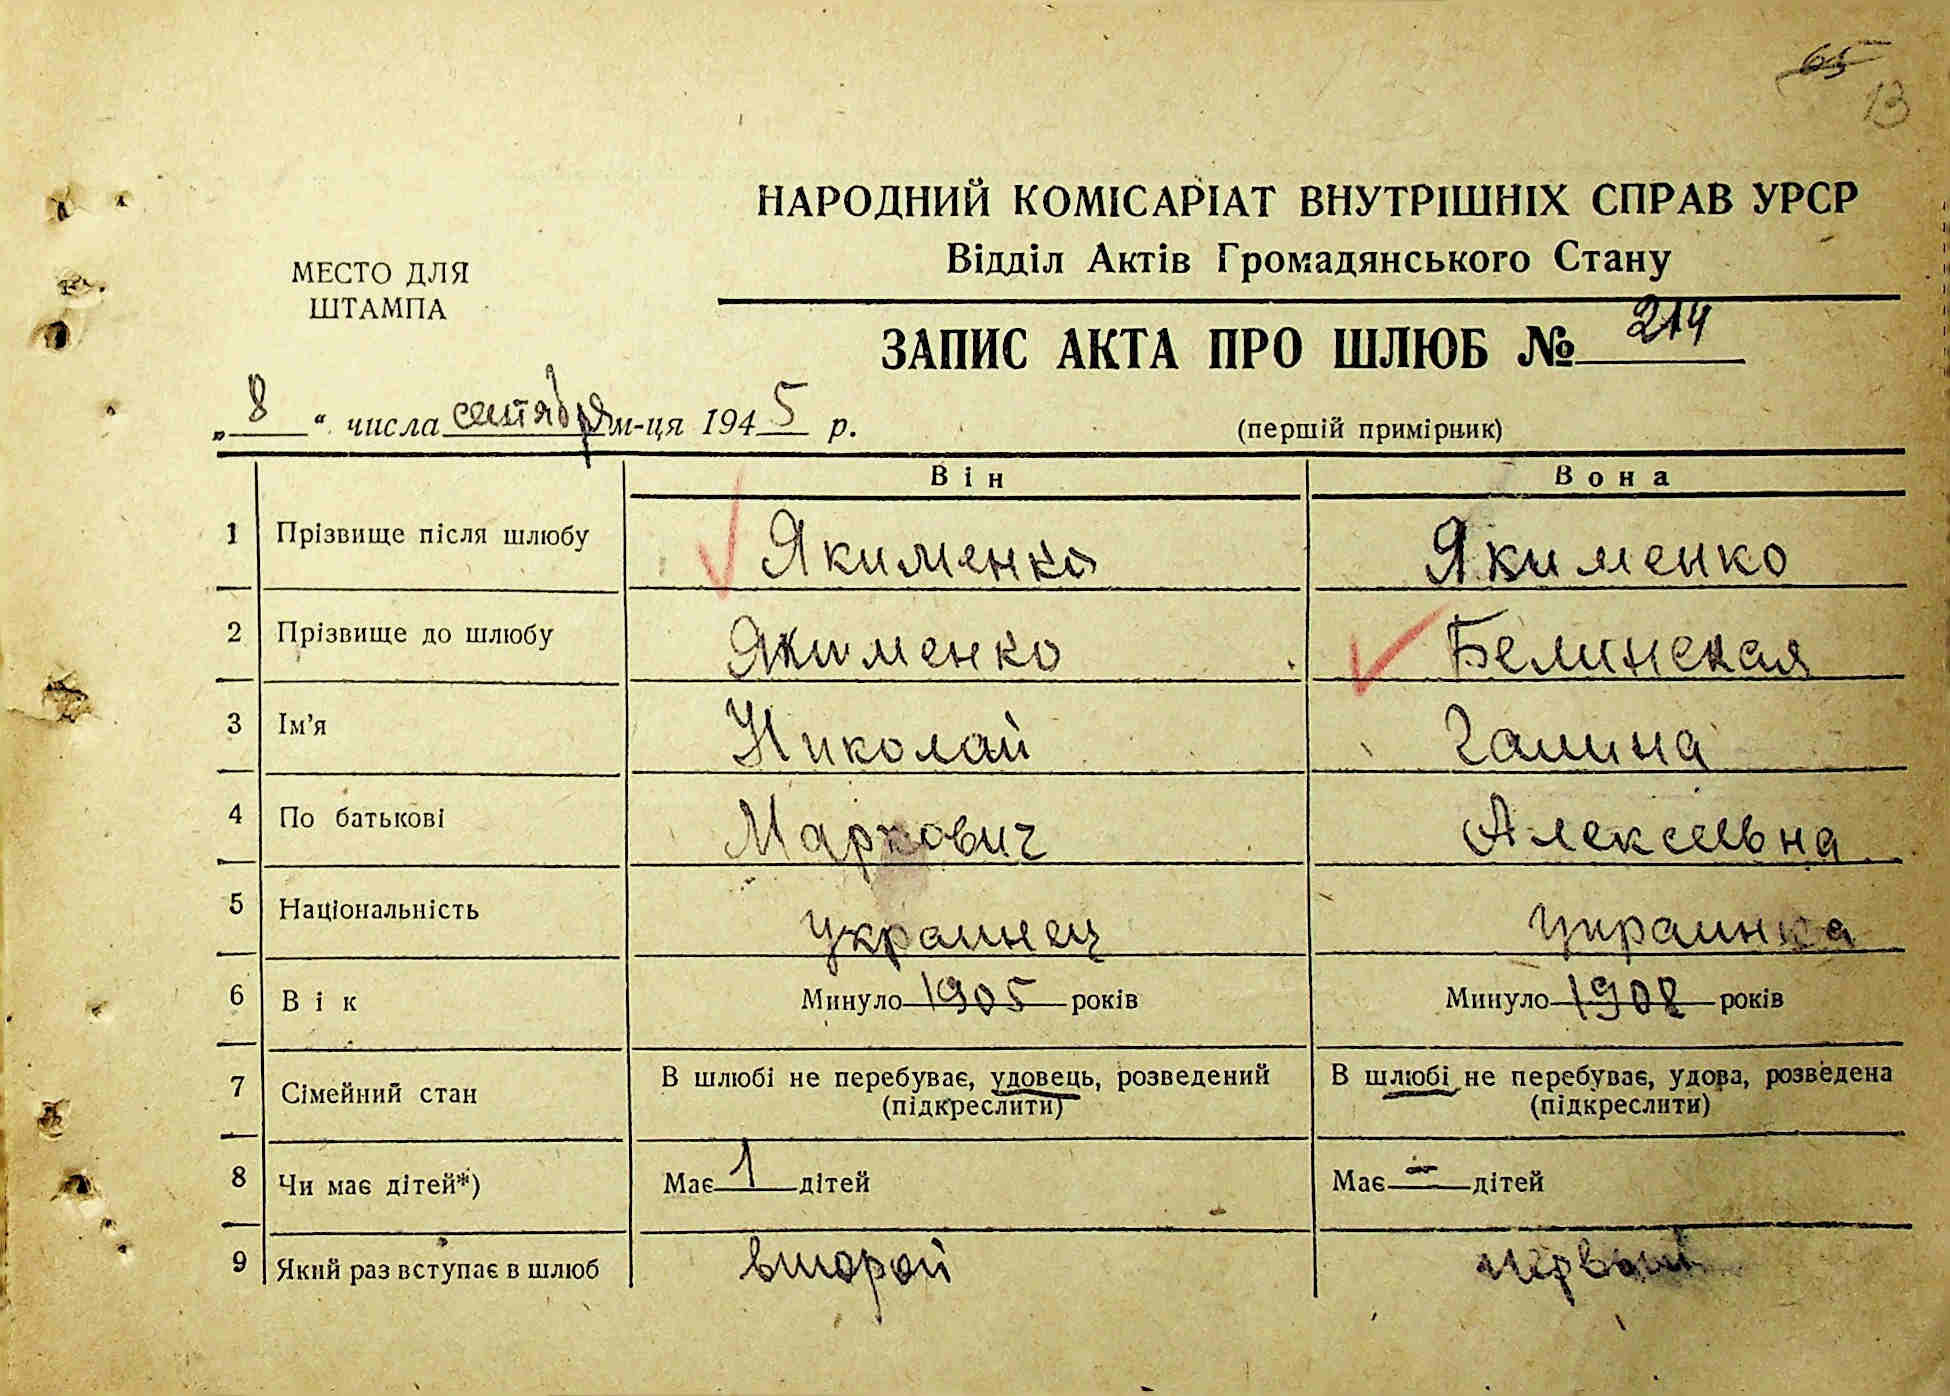 65
13
НАРОДНИЙ КОМІСАРІАТ ВНУТРІШНІХ СПРАВ УРСР
Відділ Актів Громадянського Стану
МЕСТО ДЛЯ
ШТАМПА
ЗАПИС АКТА ПРО ШЛЮБ № 214
„8“ числа сентября м-ця 1945 р.
(перший примірник)
Він Вона
1 Прізвище після шлюбу Якименко Якименко
2 Прізвище до шлюбу Якименко Белинская
3 Ім'я Николай Галина
4 По батькові Маркович Алексеевна
5 Національність украинец украинка
6 Вік Минуло 1905 років Минуло 1908 років
7 Сімейний стан В шлюбі не перебуває, удовець, розведений В шлюбі не перебуває, удова, розведена
(підкреслити) (підкреслити)
8 Чи має дітей*) Має 1 дітей Має — дітей
9 Який раз вступає в шлюб второй первый